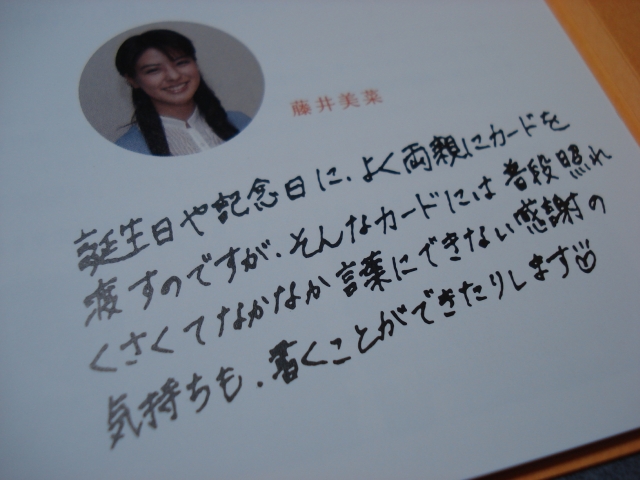 藤井美菜
誕生日や記念日に、よく両親にカードを
渡すのですが、そんなカードには普段照れ
くさくてなかなか言葉にできない感謝の
気持ちも、書くことができたりします